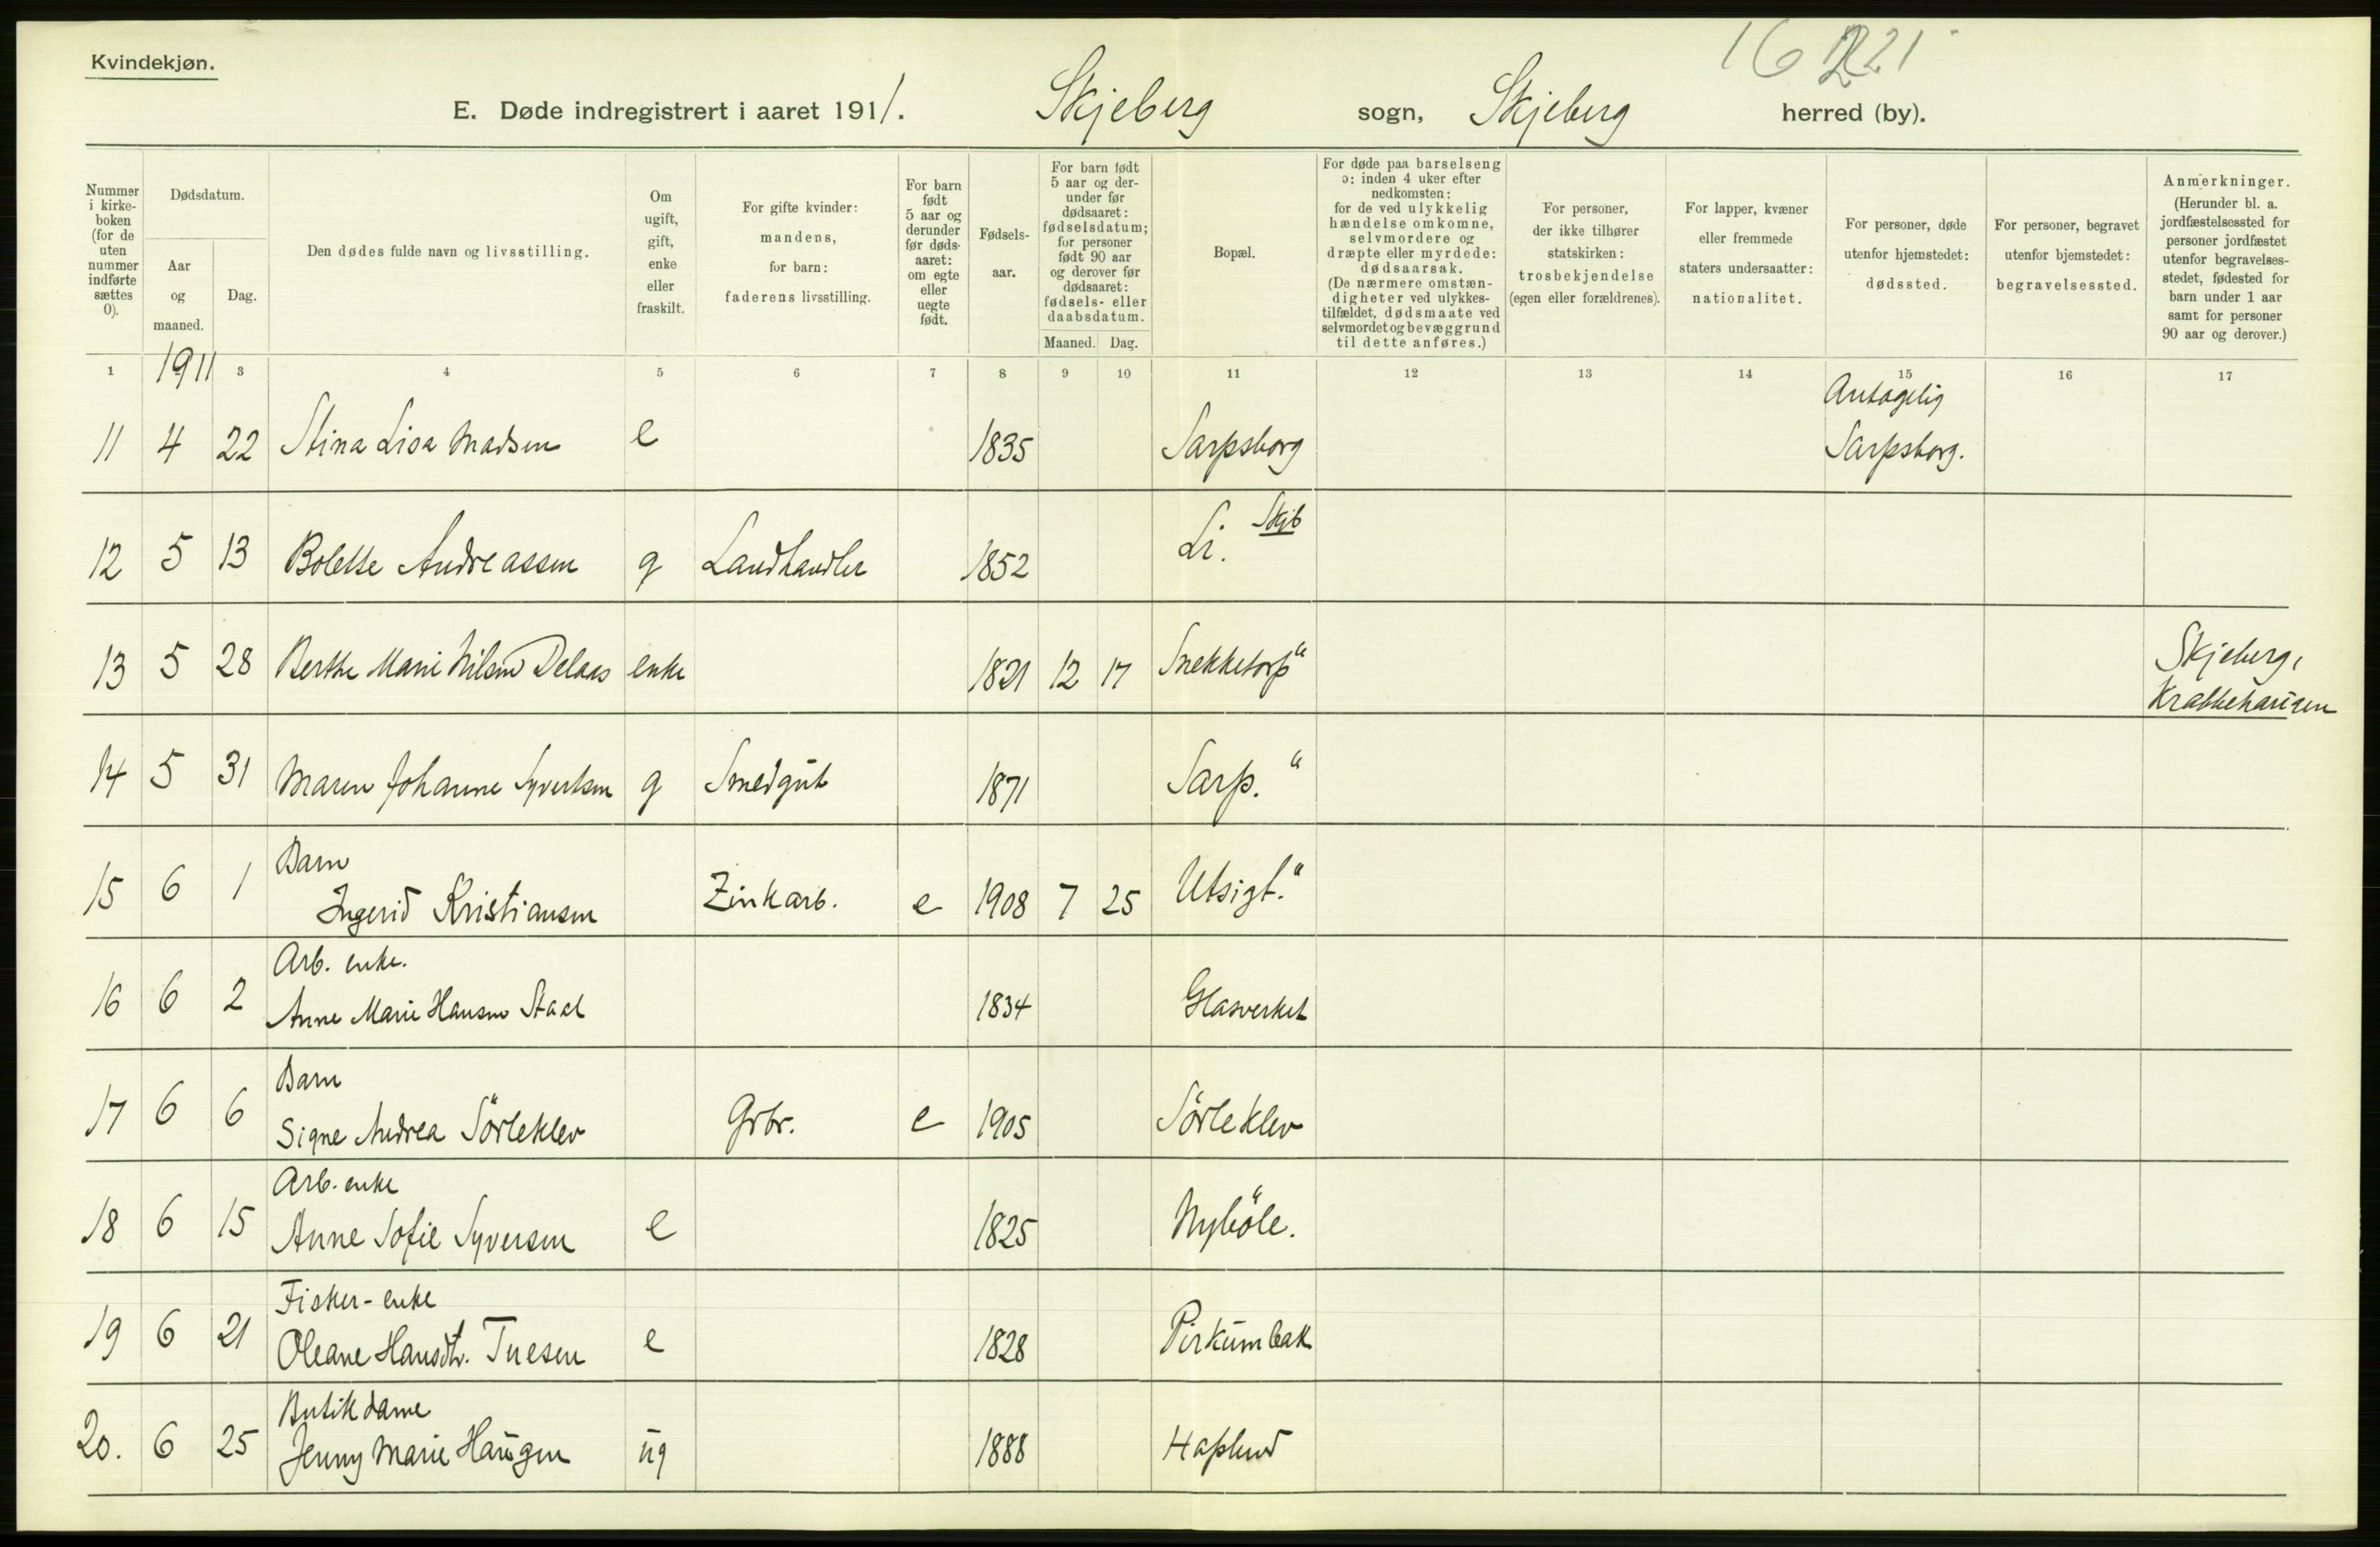 Kvindekjøn.
E. Døde indregistrert i aaret 1911. Skjeberg sogn, Skjeberg herred (by).
Nummer i kirke- boken (for de uten nummer indførte sættes 0).
Dødsdatum.
Aar og maaned.
Dag.
Den dødes fulde navn og livsstilling.
Om ugift, gift, enke eller fraskilt.
For gifte kvinder: mandens, for barn: faderens livsstilling.
For barn født 5 aar og derunder før døds- aaret: om egte eller uegte født.
Fødsels- aar.
For barn født 5 aar og der- under før dødsaaret: fødselsdatum; for personer født 90 aar og derover før dødsaaret: fødsels- eller daabsdatum.
Maaned. Dag.
Bopæl.
For døde paa barselseng ɔ: inden 4 uker efter nedkomsten: for de ved ulykkelig hændelse omkomne, selvmordere og dræpte eller myrdede: dødsaarsak. (De nærmere omstæn- digheter ved ulykkes- tilfældet, dødsmaate ved selvmordet og bevæggrund til dette anføres.)
For personer, der ikke tilhører statskirken: trosbekjendelse (egen eller forældrenes).
For lapper, kvæner eller fremmede staters undersaatter: nationalitet.
For personer, døde utenfor hjemstedet: dødssted.
For personer, begravet utenfor bjemstedet: begravelsessted.
Anmerkninger. (Herunder bl. a. jordfæstelsessted for personer jordfæstet utenfor begravelses- stedet, fødested for barn under 1 aar samt for personer 90 aar og derover.)
1 1911 3 4 5 6 7 8 9 10 11 12 13 14 15 16 17
Antagelig
11 4 22 Stina Lisa Madsen e 1835 Sarpsborg Sarpsborg.
Skjb
12 5 13 Bolette Andreassen g Landhandler 1852 Li.
13 5 28 Berthe Marie Nilsen Delaas enke 1821 12 17 Snekketorp " Skjeberg,
14 5 31 Maren Johanne Syvertsen g Smedgut 1871 Sarp. "
Barn
15 6 1 Ingerid Kristiansen Zinkarb. e 1908 7 25 Utsigt. "
Arb. enke.
16 6 2 Anne Marie Hansen 1834 Glasverket
Barn
17 6 6 Signe Andrea Sörleklev Grbr. e 1905 Sörleklev
Arb. enke
18 6 15 Anne Sofie Syversen e 1825 Nyböle.
Fisker-enke
19 6 21 Oleane Hansdtr. Tuesen e 1828
Butikdame
20. 6 25 Jenny Marie Haugen ug 1888 Hafslund